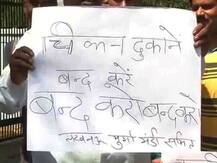 चिकन दुकाने
बन्द करे
बन्द करो बन्द करो
लखनऊ मुर्गा मंडी समिति